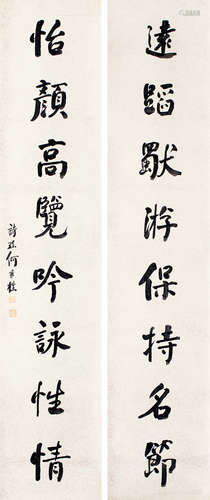 遠蹈獸游保持名節
怡顏高覽吟詠性情
詩孫何維樸